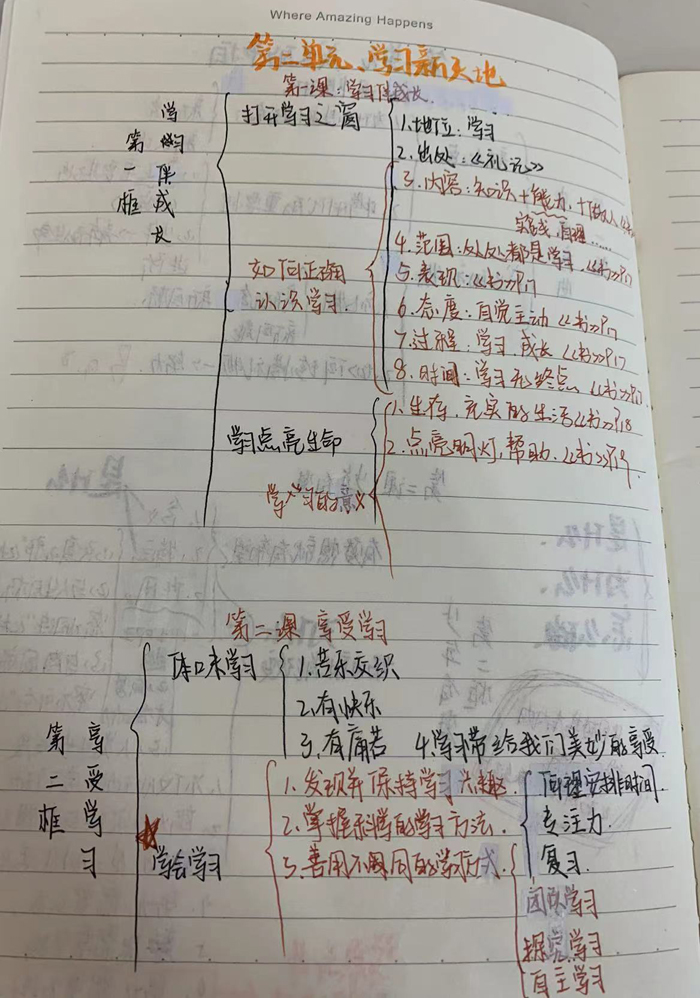 Where Amazing Happens
第二单元、学习新天地
第一课:学习伴成长
第一框 学习伴成长
打开学习之窗
1.地位:学习
2.出处:《礼记》
3.内容:知识+能力,+做人《书》
实践,真理……
4.范围:处处都是学习.《书》P17
如何正确
认识学习.
5.表现:《书》P17
6.态度:自觉主动《书》P17
7.过程:学习.成长《书》P17
8.时间:学习无终点.《书》P17
学习点亮生命
1.生存,充实的生活《书》P18
2.点亮明灯,帮助.《书》P19
学习的意义
第二课 享受学习
第二框 享受学习
体味学习
1.苦乐交织
2.有快乐
3.有痛苦 4.学习带给我们美妙的享受
学会学习
1.发现并保持学习兴趣.
2.掌握科学的学习方法.
3.善用不同的学习方式
合理安排时间.
专注力.
复习.
团队学习
探究学习
自主学习